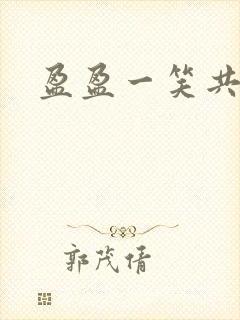 盈盈一笑共
郭茂倩